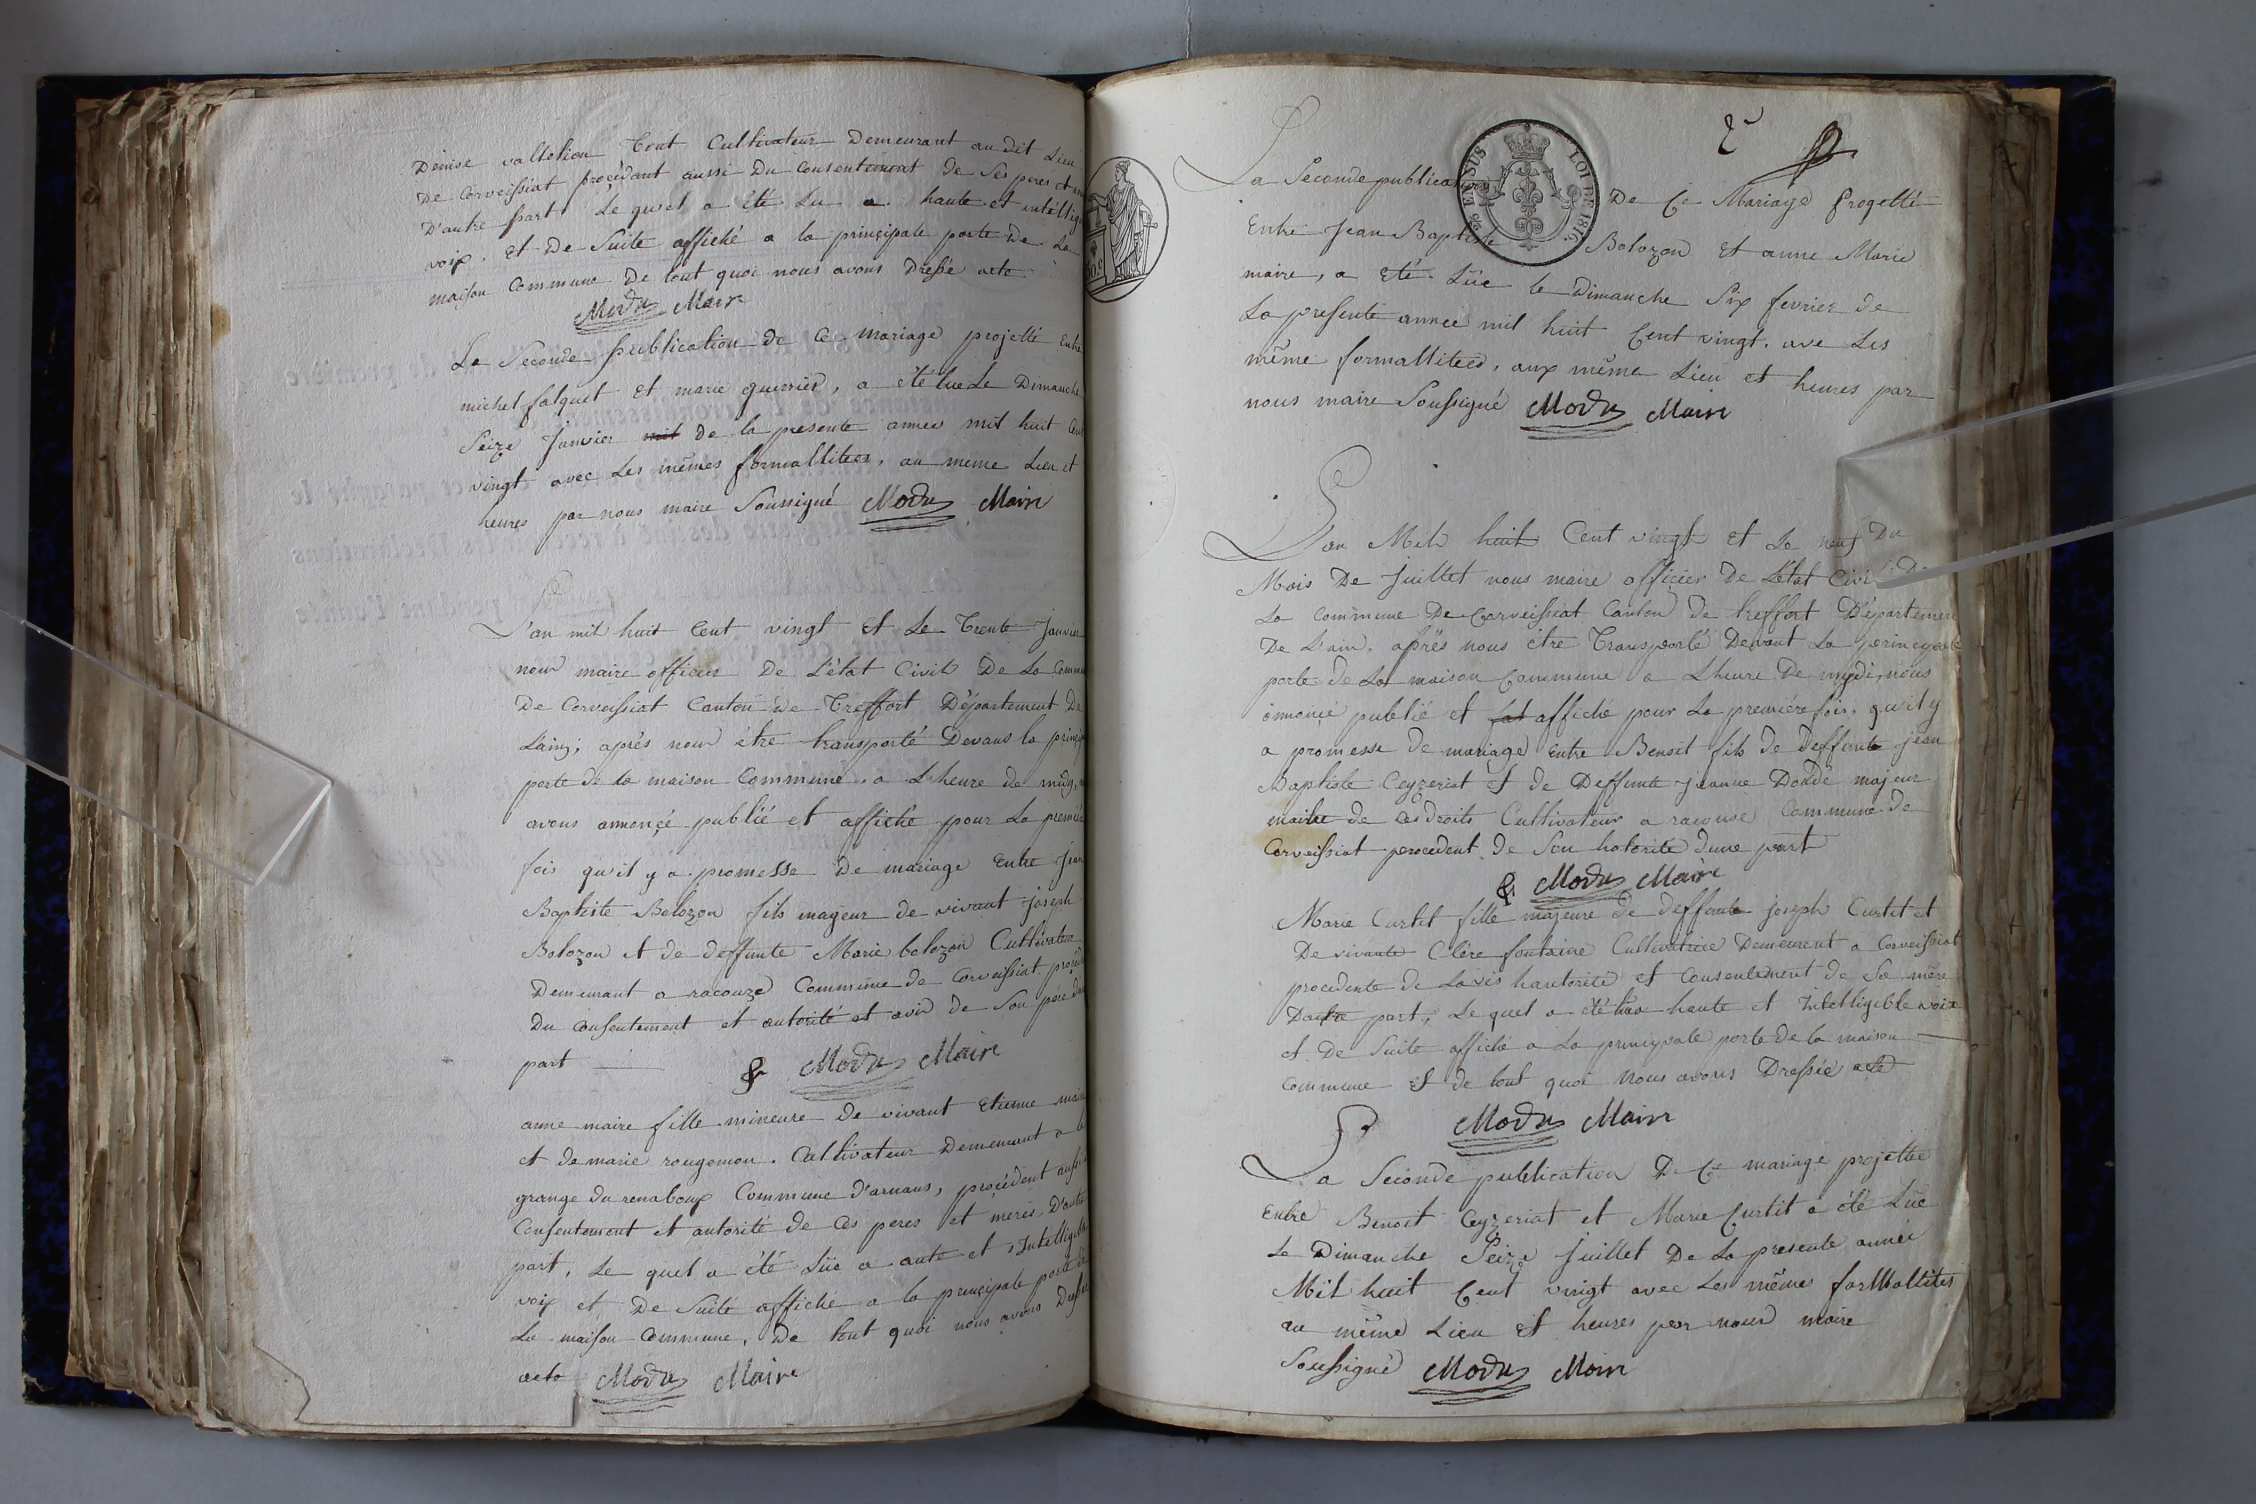 Denise valletion tout Cultivateur Demeurant au dit Lieu
De Corveissiat procédant aussi Du consentement de Ses peres et
D'autre part Le quel a été Lu a haute et intéllig
voix. et De Suite affiché a la principale porte de La
maison Commune De tout quoi nous avons Dressé acte
Maire
La Seconde publication de Ce mariage projetté Entre
michel falquet et marie guerrier, a été lue Le Dimanche
Seize Janvier mil De la presente année mil huit Cent
vingt avec Les mêmes formallitees, au meme Lieu et
heures par nous maire Soussigné Maire
L'an mil huit Cent vingt et Le Trente Janvier
nous maire officier De L'état Civil De La Commune
De Corveissiat Canton de Treffort Département De
L'ain; après nous être transporté Devant la princip
porte de la maison Commune. a L'heure de midy,
avons annonçé publié et affiché pour La premiè
fois qu'il y a promesse De mariage Entre Jean
Baptiste Bolozon fils majeur de vivant joseph
Bolozon et de deffunte Marie bolozon Cultivateur
Demeurant a racouze Commune de Corveissiat procéd
Du consentement et autorité et avis de Son père d'une
part Maire
anne maire fille mineure De vivant Etienne maire
et de marie rougemon. Cultivateur Demeurant a la
grange du renaboup Commune d'arnans, procédent aussi
Consentement et autorité de Ces peres et meres, D'autre
part, Le quel a été Lüe a aute et Intelligible
voix et De Suite affiché a la principale porte de
La maison Commune, De tout quoi nous avons Dressé
acte Maire
2
La Seconde publica De Ce Mariage Progetté
EN SUS LOI DE 1816.
Entre Jean Baptiste Bolozon Et anne Marie
maire, a Eté Lüe le Dimanche Six fevrier de
La presente année mil huit Cent vingt. ave Les
même formallitees, aux même Lieu et heures par
nous maire Soussigné Maire
L'an Mil huit Cent vingt et Le neuf Du
Mois De Juillet nous maire officier De L'Etat Civil De
La Commune De Corveissiat Canton de treffort Département
De L'ain. après nous être Transporté Devant La principale
porte de La maison Commune a L'heure De mydi, nous
annonçé publié et fat affiché pour La première fois. qu'il y
a promesse De mariage Entre Benoit fils de Deffunte jean
Baptiste Ceyzeriat Et de Deffunte Jeanne Dodde majeur
maitre de Ces droits Cultivateur a racouse Commune de
Corveissiat procedent de Son hotorité dune part
Maire
Marie Curtet fille majeure de deffunte joseph Curtet et
De vivante Clère fontaine Cultivatrice Demeurent a Corveissiat
procedente de Lavis hautorité et Consentement de Sa mère
Dautre part, Le quel a été lua haute et Intelligible voix
et De Suite affiché a La principale porte de la maison
Commune Et de tout quoi Nous avons Dressée acte
Maire
La Seconde publication De Ce mariage projettée
Entre Benoit Ceyzeriat et Marie Curtit a été Lüe
Le Dimanche Seize Juillet De La presente année
Mil huit Cent vingt avec Les mêmes formallites
au même Lieu Et heures par nous maire
Soussigné Maire